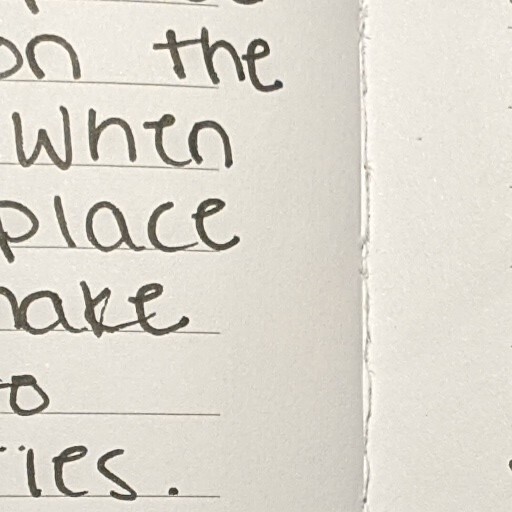 on the
When
place
make
to
ies.